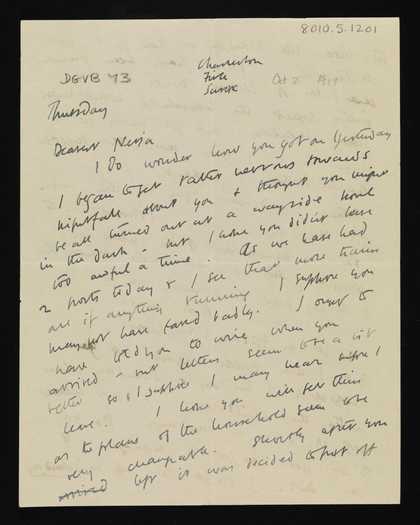 8010.5.1201
DGVB 73
Charleston
Firle
Sussex
Oct 2 1919
Thursday
Dearest Nessa
I do wonder how you got on yesterday
I began to get rather nervous towards
nightfall about you & thought you might
be all turned out at a wayside
in the dark - but I hope you didn't have
too awful a time. As we have had
2 posts today & I see that more trains
are if anything running I suppose you
may not have fared badly. I ought to
have told you to wire when you
arrived - but letters seem to be a bit
better so I suppose I may hear before I
leave. I hope you will get this
as the plans of the household seem to be
very changeable. Shortly after you
arrived left it was decided to put off